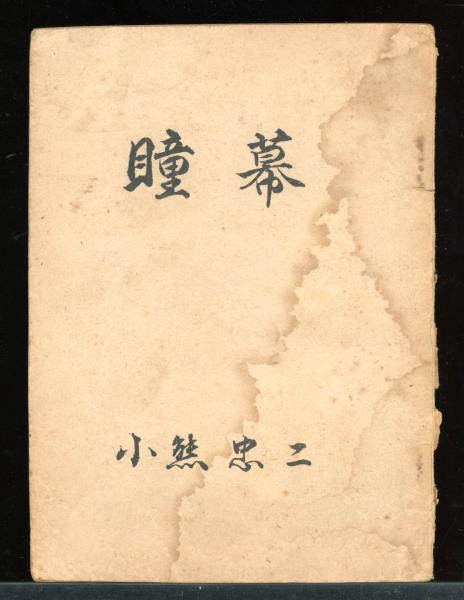 瞳幕
小熊忠二